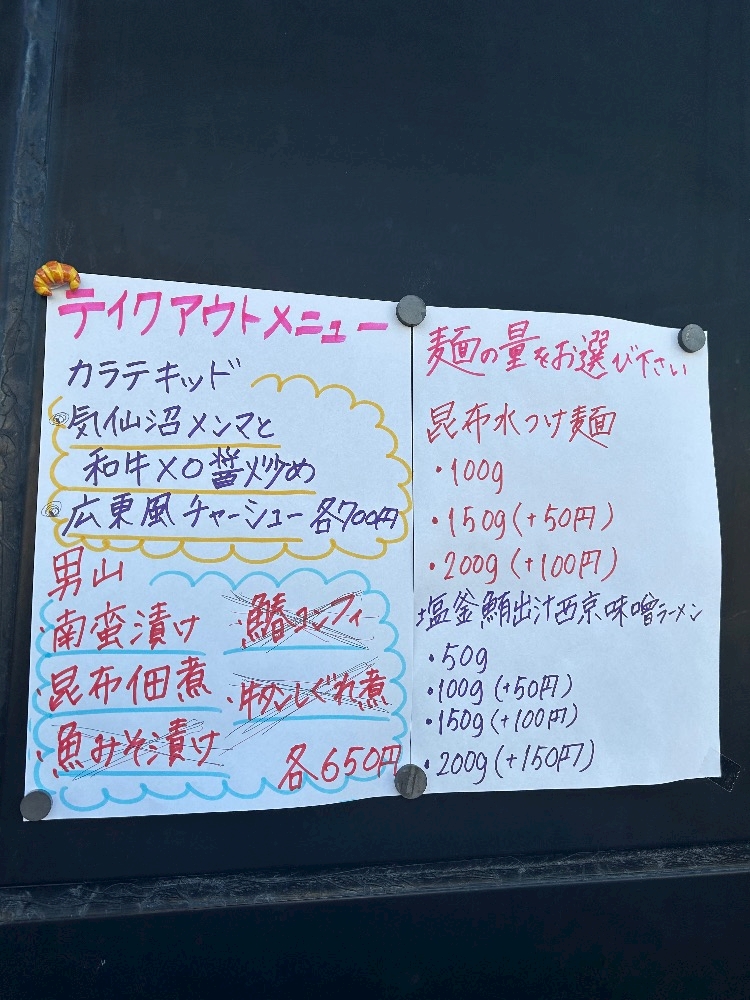 テイクアウトメニュー
カラテキッド
気仙沼メンマと
和牛XO醤炒め
広東風チャーシュー 各700円
男山
・南蛮漬け
鰆コンフィ
・昆布佃煮
・牛タンしぐれ煮
・魚みそ漬け
各650円
麺の量をお選び下さい
昆布水つけ麺
・100g
・150g(+50円)
・200g(+100円)
塩釜鮪出汁西京味噌ラーメン
・50g
・100g(+50円)
・150g(+100円)
・200g(+150円)